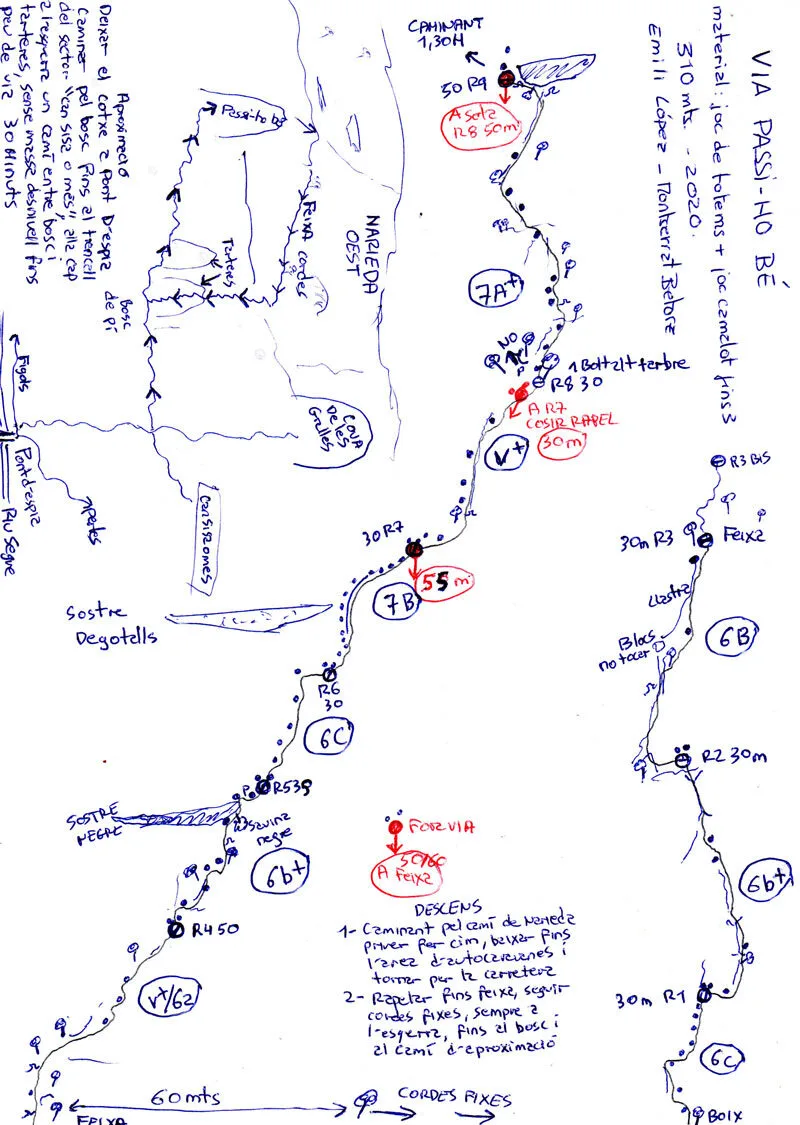 VIA PASSI-HO BÉ
material: joc de totems + joc camalot fins 3
310 mts. - 2020.
Emili López - Montserrat Betora
CAMINANT
1,30H
50 R9
A sota
R8 50m
7A+
NO
P
1 Bolt alt + arbre
R8 30
A R7
COSIR RAPEL
30m
V+
30 R7
55 m
7B
Sostre
Degotalls
R6
30
6C
R5 35
P
SOSTRE
NEGRE
savina
negre
6b+
R4 50
V+/6a
60 mts
FEIXA
CORDES FIXES
FORA VIA
50/60
A Feixa
DESCENS
1- Caminant pel camí de Narieda
primer per cim, baixar fins
l'area d'autocaravanes i
tornar per la carretera
2- Rapelar fins feixa, seguir
cordes fixes, sempre a
l'esquerra, fins al bosc i
al camí d'aproximació
R3 BIS
30m R3
Feixa
llastra
6B
Blocs
no tocar
R2 30m
6b+
30m R1
6c
BOIX
Aproximació
Deixar el cotxe a Pont D'espia
Caminar pel bosc fins al trencall
del sector "can siso o més", alla cap
a l'esquerra un camí entre bosc i
tarteres, sense massa desnivell fins
peu de via 30 Minuts
Passi-ho bé
FEIXA cordes
NARIEDA
OEST
Tarteres
Bosc
de pi
COVA
De les
Gralles
Can siso o mes
Figols
Pont d'espia
Perles
Riu Segre